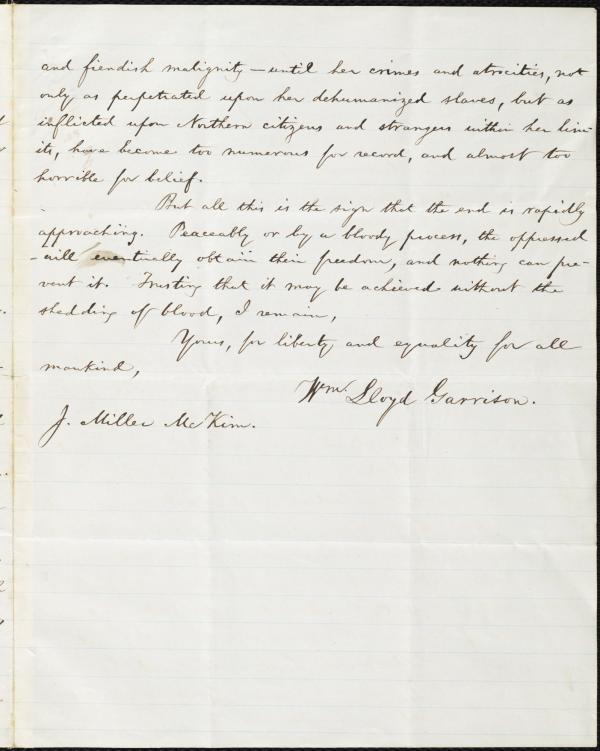 and fiendish malignity — until her crimes and atrocities, not
only as perpetrated upon her dehumanized slaves, but as
inflicted upon Northern citizens and strangers within her lim-
its, have become too numerous for record, and almost too
horrible for belief.
But all this is the sign that the end is rapidly
approaching. Peaceably or by a bloody process, the oppressed
will eventually obtain their freedom, and nothing can pre-
vent it. Trusting that it may be achieved without the
shedding of blood, I remain,
Yours, for liberty and equality for all
mankind,
Wm. Lloyd Garrison.
J. Miller McKim.